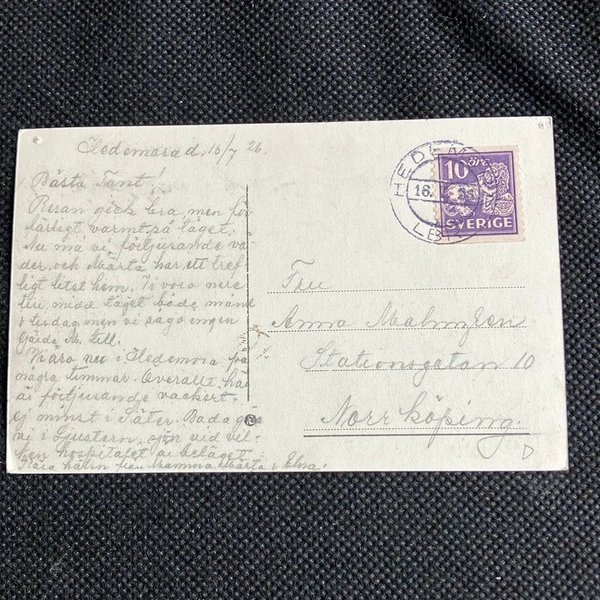 Hedemora d. 16/7 26
Bästa Tant!
Resan gick bra, men för
färligt varmt på tåget.
Nu ha vi förtjusande vä
der, och Märta har ett tref
ligt litet hem. Vi voro nere
vid tåget både månd
o tisdag men vi sågo ingen
Gärda M. till.
Vi äro nu i Hedemora på
några timmar. Överallt här
är förtjusande vackert,
ej minst i Säter. Bada gå
vi i Ljustern, sjön vid vil-
ken hospitalet är beläget
Kära hälsn från Mamma Märta o Elna.
HEDEMORA
16. 7. 26
LBR
10 öre
SVERIGE
Fru
Anna Malmgren
Stationsgatan 10
Norrköping.
D